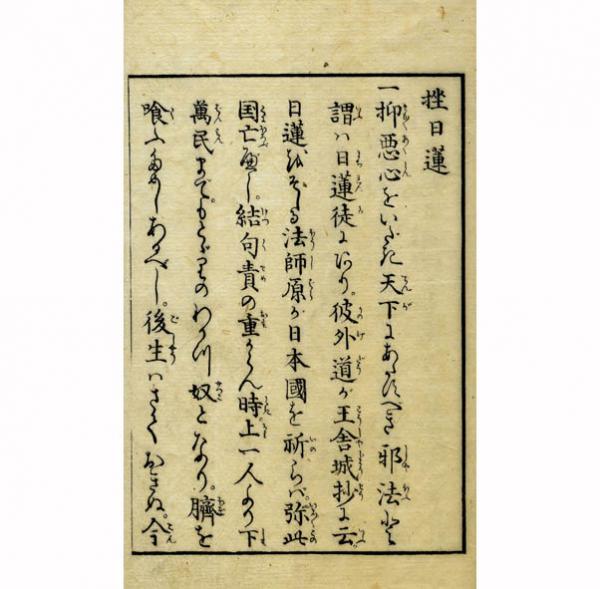 挫日蓮
一抑悪心をいだき天下にあだすべき邪法を
謂ハ日蓮徒にあり。彼外道が王舎城抄に云。
日蓮をそしる法師原が日本國を祈らバ。弥此
国亡べし。結句責の重からん時上一人より下
萬民まで。もとゞりのわかつ奴となり。臍を
喰ふためしあるべし。後生ハさてをきぬ。今